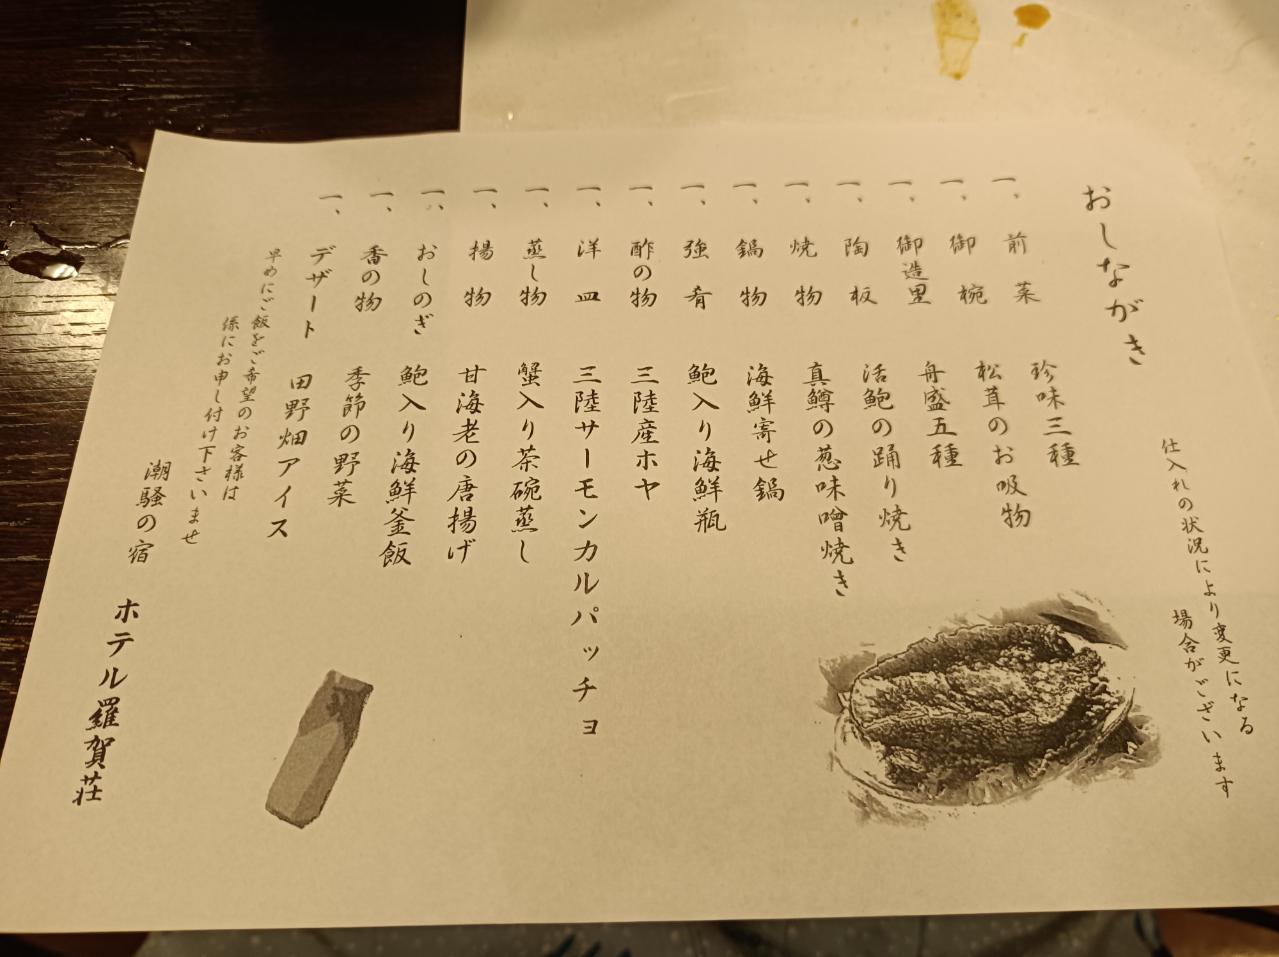 おしながき
仕入れの状況により変更になる
場合がございます
一、前菜 珍味三種
一、御椀 松茸のお吸物
一、御造里 舟盛五種
一、陶板 活鮑の踊り焼き
一、焼物 真鱒の葱味噌焼き
一、鍋物 海鮮寄せ鍋
一、強肴 鮑入り海鮮瓶
一、酢の物 三陸産ホヤ
一、洋皿 三陸サーモンカルパッチョ
一、蒸し物 蟹入り茶碗蒸し
一、揚物 甘海老の唐揚げ
一、おしのぎ 鮑入り海鮮釜飯
一、香の物 季節の野菜
一、デザート 田野畑アイス
早めにご飯をご希望のお客様は
係にお申し付け下さいませ
潮騒の宿 ホテル羅賀荘